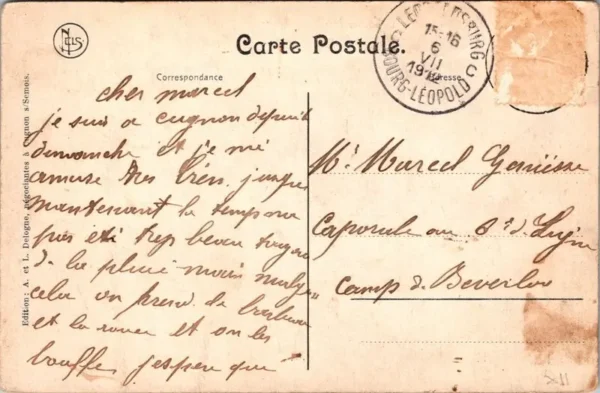 NELS
Carte Postale.
LEOPOLDSBURG
15-16
6
VII
BOURG-LÉOPOLD
Correspondance
Adresse
Edition: A. et L. Delogne, négociantes à Cugnon s/Semois.
cher marcel
je suis a cugnon depuis
dimanche et je me
amuse tres bien. jusque
maintenant le temps na
pas été trop beau toujours
de la pluie mais malgre
cela on prend de
et la et on les
bouffe jespere que
Mr. Marcel
Caporale au de Ligne
Camp de Beverloo
XII